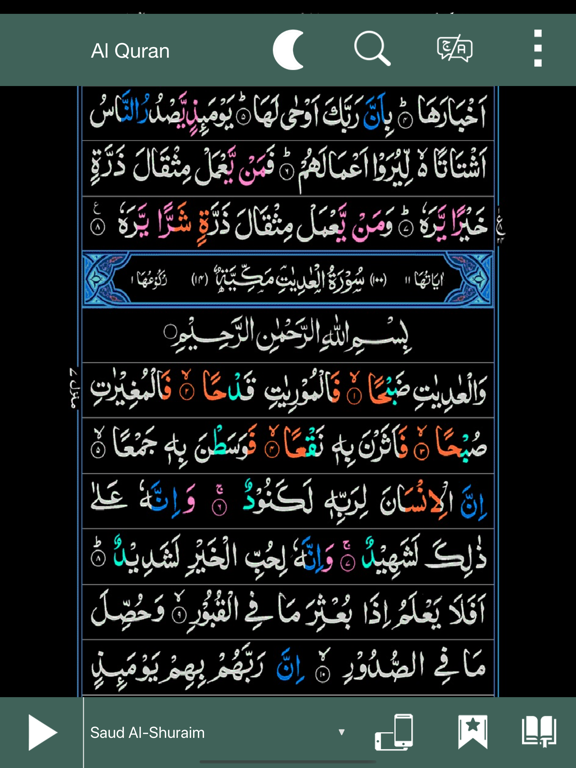 Al Quran
اَخْبَارَهَا ۙ۴ بِاَنَّ رَبَّكَ اَوْحٰى لَهَا ؕ۵ يَوْمَىِٕذٍ يَّصْدُرُ النَّاسُ
اَشْتَاتًا ۙ۬ لِّيُرَوْا اَعْمَالَهُمْ ؕ۶ فَمَنْ يَّعْمَلْ مِثْقَالَ ذَرَّةٍ
خَيْرًا يَّرَهٗ ؕ۷ وَمَنْ يَّعْمَلْ مِثْقَالَ ذَرَّةٍ شَرًّا يَّرَهٗ ۸
اٰيَاتُهَا ۱۱ (۱۰۰) سُوْرَةُ الْعٰدِيٰتِ مَكِّيَّةٌ (۱۴) رُكُوْعُهَا ۱
بِسْمِ اللّٰهِ الرَّحْمٰنِ الرَّحِيْمِ
وَالْعٰدِيٰتِ ضَبْحًا ۙ۱ فَالْمُوْرِيٰتِ قَدْحًا ۙ۲ فَالْمُغِيْرٰتِ
صُبْحًا ۙ۳ فَاَثَرْنَ بِهٖ نَقْعًا ۙ۴ فَوَسَطْنَ بِهٖ جَمْعًا ۙ۵
اِنَّ الْاِنْسَانَ لِرَبِّهٖ لَكَنُوْدٌ ۚ۶ وَاِنَّهٗ عَلٰى
ذٰلِكَ لَشَهِيْدٌ ۚ۷ وَاِنَّهٗ لِحُبِّ الْخَيْرِ لَشَدِيْدٌ ؕ۸
اَفَلَا يَعْلَمُ اِذَا بُعْثِرَ مَا فِى الْقُبُوْرِ ۙ۹ وَحُصِّلَ
مَا فِى الصُّدُوْرِ ۙ۱۰ اِنَّ رَبَّهُمْ بِهِمْ يَوْمَىِٕذٍ
منزل ۷
Saud Al-Shuraim